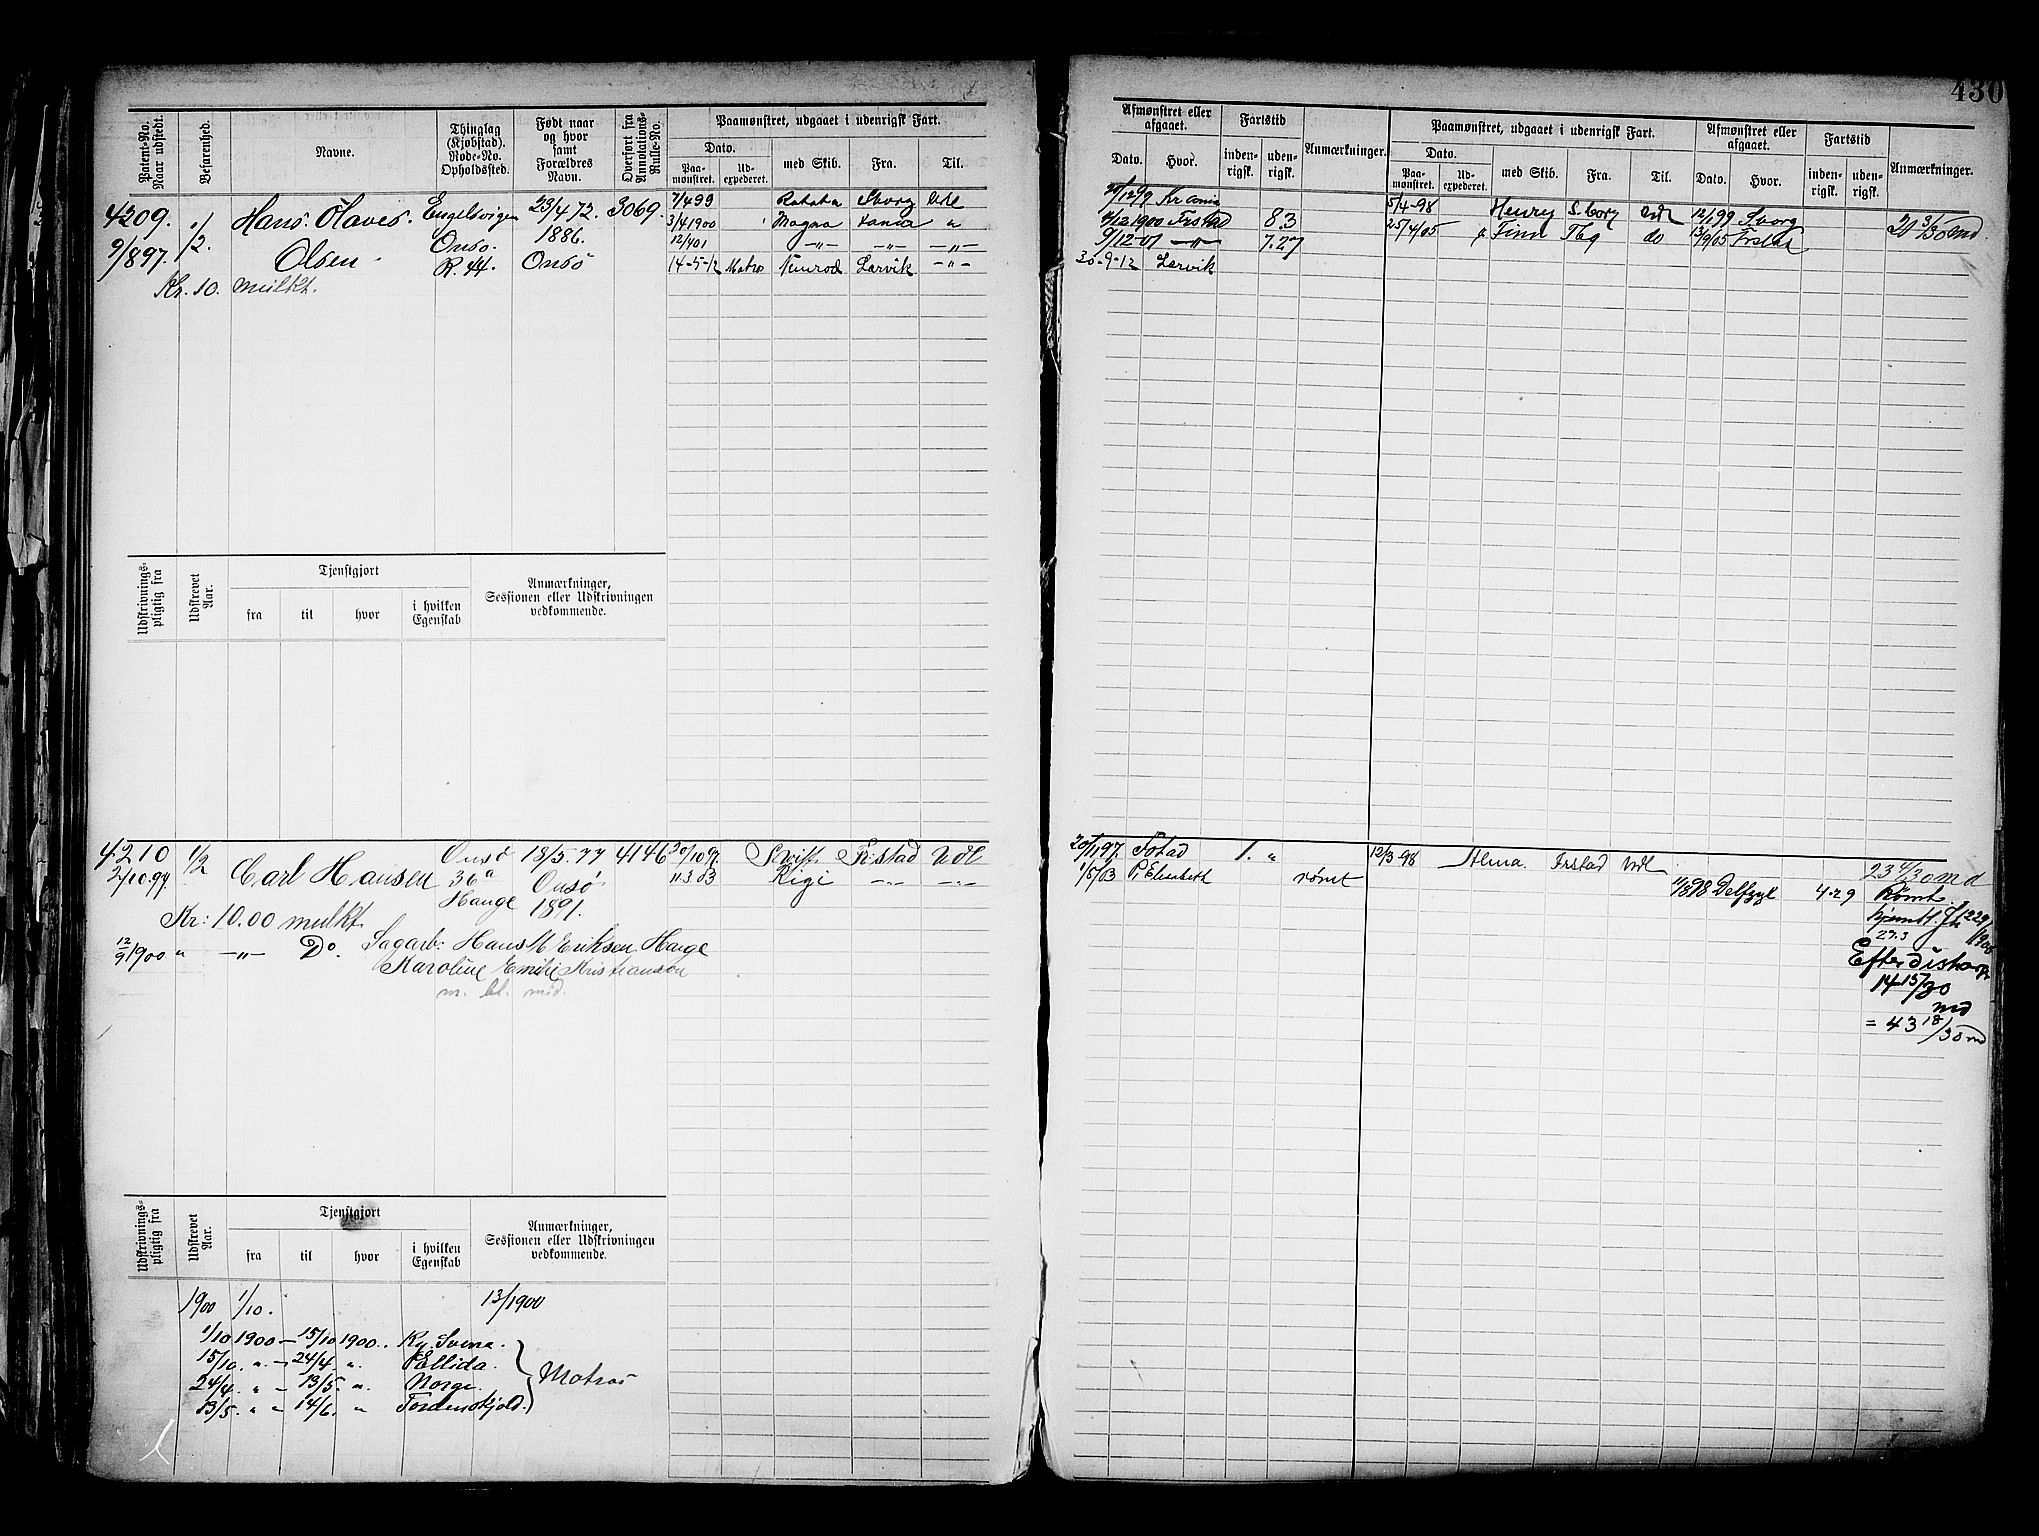 430
Patent-No. Naar udstedt.
Befarenhed.
Navne.
Thinglag (Kjøbstad). Rode-No. Opholdssted.
Født naar og hvor samt Forældres Navn.
Overført fra Annotations-Rulle-No.
Paamønstret, udgaaet i udenrigsk Fart.
Dato.
Paa-mønstret.
Ud-expederet.
med Skib.
Fra.
Til.
Afmønstret eller afgaaet.
Dato.
Hvor.
Fartstid
inden-rigsk.
uden-rigsk.
Anmærkninger.
Paamønstret, udgaaet i udenrigsk Fart.
Dato.
Paa-mønstret.
Ud-expederet.
med Skib.
Fra.
Til.
Afmønstret eller afgaaet.
Dato.
Hvor.
Fartstid
inden-rigsk.
uden-rigsk.
Anmærkninger.
4209. 1/2 Hans Olaves Engelsvigen 23/4 72. 3069 7/4 99 Sborg Udl
9/8 97. Olsen Onsø. 1886. 3/4 1900 Magna
R. 44. Onsø 12/4 01 -"- -"- -"-
Kr. 10. mulkt. 14-5-12 Matros Nimrod Larvik -"-
Kr ania
4/12 1900 Frstad 8.3
9/12-01 -"- 7.27
30-9-12 Larvik
5/4-98 Henry S.borg Udl 12/1 99 Sborg 20 3/30 md
25/4/05 Finn Tbg do 13/9/05 Frstad
Udskrivnings-pligtig fra
Udskrevet Aar.
Tjenstgjort
fra
til
hvor
i hvilken Egenskab
Anmærkninger, Sessionen eller Udskrivningen vedkommende.
4210 1/2 Carl Hansen Onsø 18/5.77 4146 30/10 97. Swift Fr:stad Udl
2/10.97. 36a Onsø 11.3.03 Rigi -"- -"-
Hauge 1891.
Kr: 10.00 mulkt.
12/9 1900 " -"- Do. Sagarb: Hans M Eriksen Hauge
Karoline Emilie Kristianson
m. bl. mid.
20/11 97. 1. " 12/3-98 Alma. Frstad Udl 23 4/30 md
1/5/03 P. Elizabeth rømt Delfzyl 4.29 Rømt.
hjemk.
27.3
Efter
14 15/30
md
= 43 18/30 md
Udskrivnings-pligtig fra
Udskrevet Aar.
Tjenstgjort
fra
til
hvor
i hvilken Egenskab
Anmærkninger, Sessionen eller Udskrivningen vedkommende.
1900 1/10. 13/1900
1/10 1900 – 15/10 1900. Kj. Svence.
15/10. " – 24/4. " Ellida.
24/4. " – 13/5. " Norge. Matros
13/5. " " 14/6. " Tordenskjold.